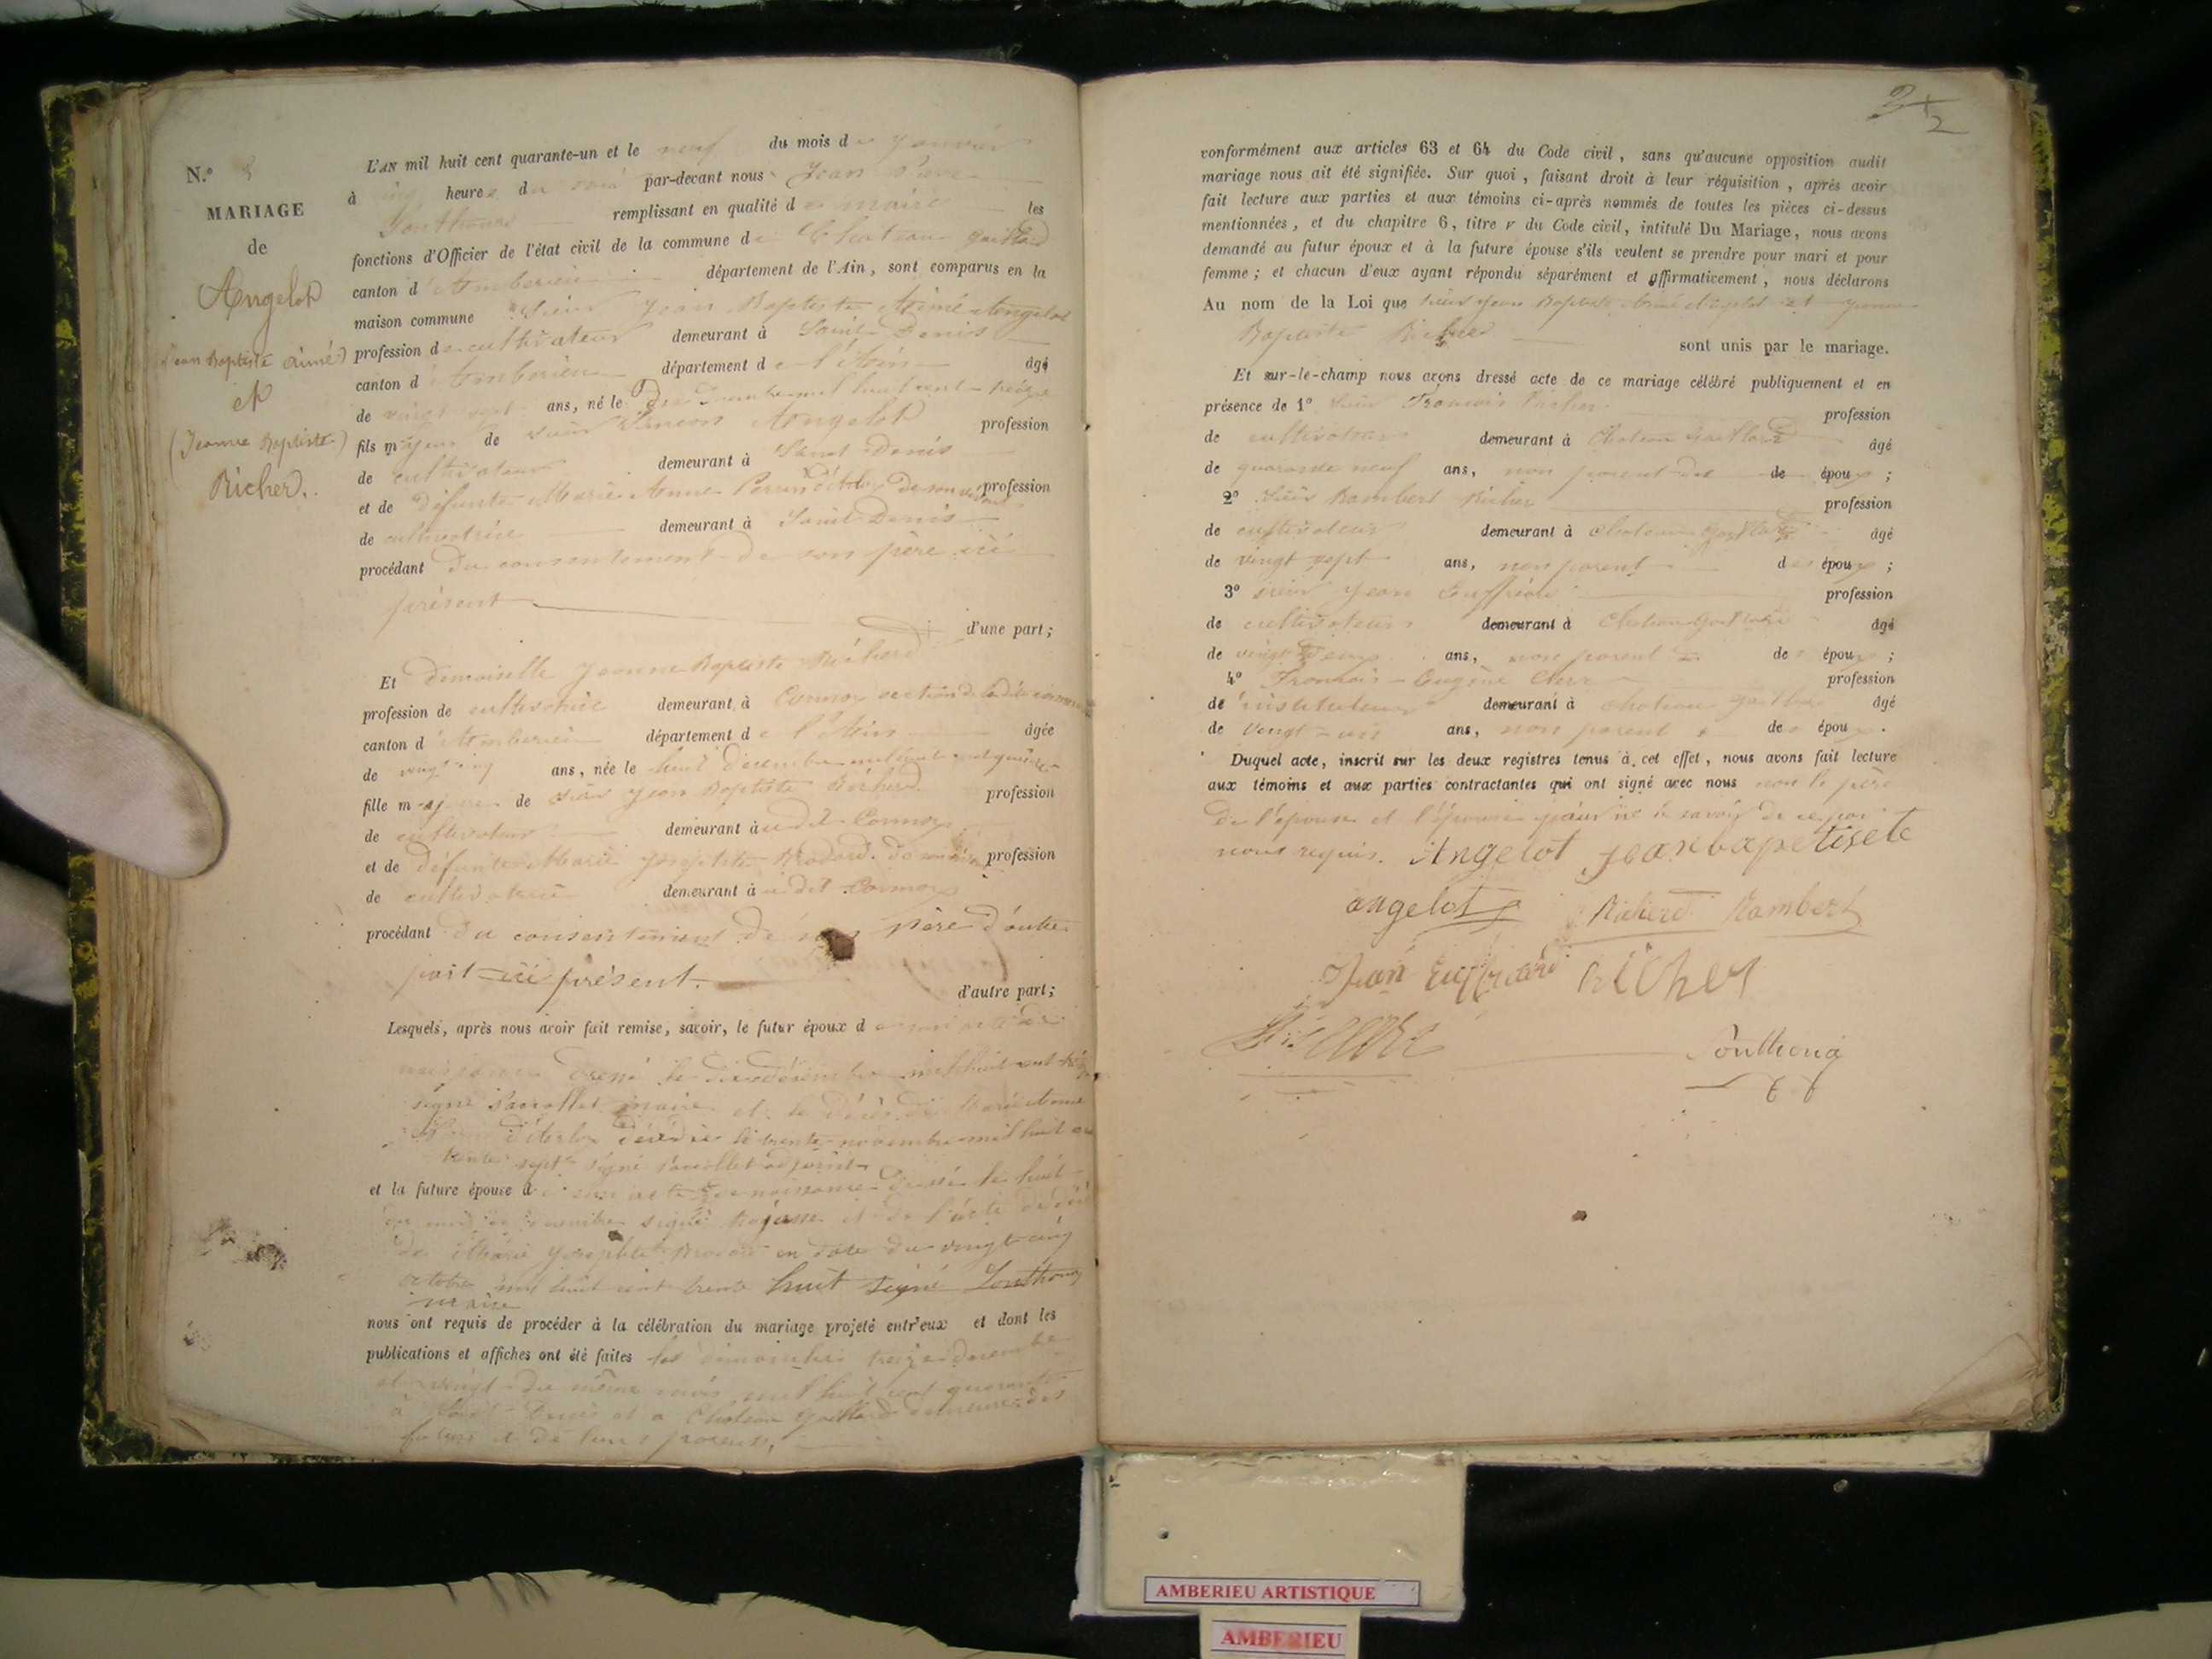 N.º
MARIAGE
de
Angelot
(Jean Baptiste Aimé)
et
(Jeanne Baptiste)
Richerd.
L'AN mil huit cent quarante-un et le neuf du mois de janvier
à cinq heures du soir par-devant nous Jean Pierre
Ponthona remplissant en qualité de maire les
fonctions d'Officier de l'état civil de la commune de Chateau gaillard
canton d'Amberieu département de l'Ain, sont comparus en la
maison commune Sieur Jean Baptiste Aimé Angelot
profession de cultivateur demeurant à Saint Denis
canton d'Amberieu département de l'Ain âgé
de vingt sept ans, né le dix décembre mil huit cent treize
fils majeur de sieur Angelot profession
de cultivateur demeurant à Saint Denis
et de défunte Marie Anne Perrin de son vivant profession
de cultivatrice demeurant à Saint Denis
procédant du consentement de son père ici
présent
d'une part;
Et demoiselle Jeanne Baptiste Richerd
profession de cultivatrice demeurant à Cormoz section de la dite commune
canton d'Amberieu département de l'Ain âgée
de vingt cinq ans, née le huit décembre mil huit cent quinze
fille majeure de sieur Jean Baptiste Richerd profession
de cultivateur demeurant à udit Cormoz
et de défunte Marie Josephte Brodard de son vivant profession
de cultivatrice demeurant à udit Cormoz
procédant du consentement de son père d'autre
part ici présent.
d'autre part;
Lesquels, après nous avoir fait remise, savoir, le futur époux de son acte de
naissance dressé le dix décembre mil huit cent treize
signé maire et le décès de Marie Anne
décédée le trente novembre mil huit cent
trente sept signé adjoint
et la future épouse de son acte de naissance dressé le huit
du mois de décembre signé et de l'acte de décès
de Marie Josephte Brodard en date du vingt cinq
octobre mil huit cent trente huit signé Ponthona
maire
nous ont requis de procéder à la célébration du mariage projeté entr'eux et dont les
publications et affiches ont été faites les dimanches treize décembre
et vingt du même mois mil huit cent quarante
à Saint Denis et à Chateau gaillard demeure des
futurs et de leurs parents,
2
2
conformément aux articles 63 et 64 du Code civil, sans qu'aucune opposition audit
mariage nous ait été signifiée. Sur quoi, faisant droit à leur réquisition, après avoir
fait lecture aux parties et aux témoins ci-après nommés de toutes les pièces ci-dessus
mentionnées, et du chapitre 6, titre v du Code civil, intitulé Du Mariage, nous avons
demandé au futur époux et à la future épouse s'ils veulent se prendre pour mari et pour
femme; et chacun d'eux ayant répondu séparément et affirmativement, nous déclarons
Au nom de la Loi que sieur Jean Baptiste Aimé Angelot et Jeanne
Baptiste Richerd sont unis par le mariage.
Et sur-le-champ nous avons dressé acte de ce mariage célébré publiquement et en
présence de 1º Sieur François Richer profession
de cultivateur demeurant à Chateau Gaillard âgé
de quarante neuf ans, non parent des de époux;
2º Sieur Rambert Richer profession
de cultivateur demeurant à Chateau Gaillard âgé
de vingt sept ans, non parent des époux;
3º sieur Jean profession
de cultivateur demeurant à Chateau Gaillard âgé
de vingt deux ans, non parent des époux;
4º François Eugène Clerc profession
de instituteur demeurant à Chateau Gaillard âgé
de vingt un ans, non parent des époux.
Duquel acte, inscrit sur les deux registres tenus à cet effet, nous avons fait lecture
aux témoins et aux parties contractantes qui ont signé avec nous non le père
de l'épouse et l'épouse pour ne le savoir de ce par
nous requis. Angelot jeanbapetisete
angelot Richerd Rambert
Jean richer
Ponthona
AMBERIEU ARTISTIQUE
AMBERIEU